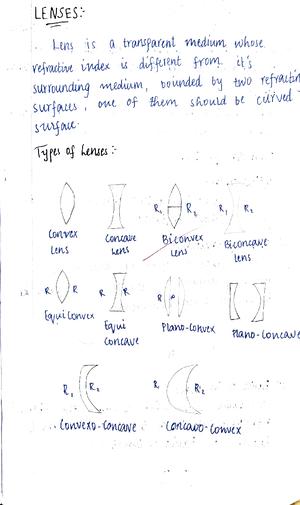 LENSES:-
Lens is a transparent medium whose
refractive index is different from it's
surrounding medium, bounded by two refracting
surfaces, one of them should be curved
surface.
Types of Lenses:-
R₁ R₂ R₁ R₂
Convex Lens
Concave Lens
Biconvex Lens
Biconcave Lens
R R R R
Equi Convex
Equi Concave
Plano-Convex
Plano-Concave
R₁ R₂ R₁ R₂
Convexo-Concave Concavo-Convex